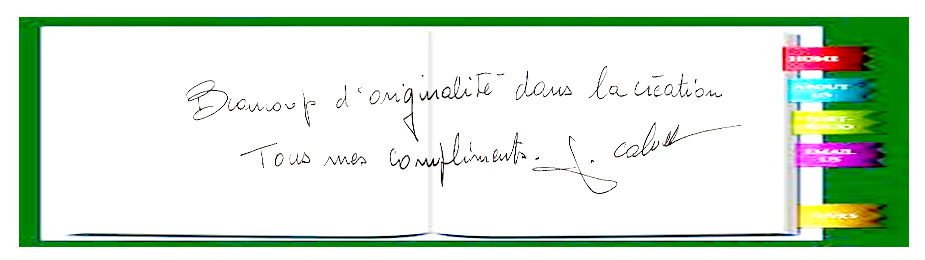 Beaucoup d'originalité dans la création
Tous mes compliments.
HOME
ABOUT
US
PORT-
FOLIO
EMAIL
US